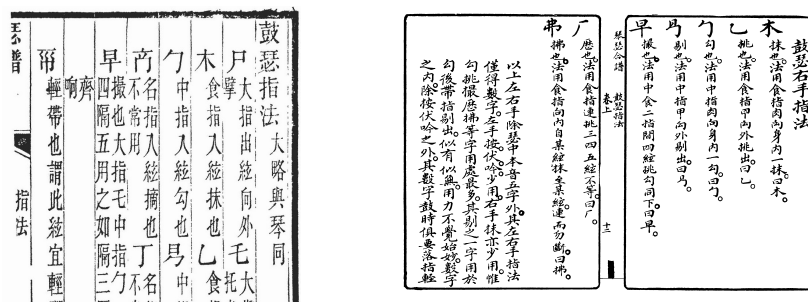 鼓瑟指法大略與琴同
尸大指出絃向外乇大
擘托
木食指入絃抹也乙食
勹中指入絃勾也𠃜中
啇名指入絃摘也丁名
不常用不
早撮也大指乇中指勹
四隔五用之如隔三
齊響
帶輕帶也謂此絃宜輕
瑟譜
指法
鼓瑟右手指法
木
抹也法用食指肉向身內一抹曰木
乙
挑也法用食指甲向外挑出曰乙
勹
勾也法用中指肉向身內一勾曰勹
剔也法用中指甲向外剔出曰
早
撮也法用中食二指間四絃挑勾同下曰早
琴瑟合譜
卷上
鼓瑟指法
十三
厂
歷也法用食指連挑三四五絃不等曰厂
弗
拂也法用食指向內自某絃抹至某絃連而勿斷曰拂
以上左右手除瑟中本音五字外其左右手指法
僅得數字左手按伏吟少用右手抹亦少用惟
勾挑撮歷拂等字用處最多其剔之一字用於
勾後帶指剔出似有似無用力不覺始妙數字
之內除按伏吟之外其數字鼓時俱要落指輕